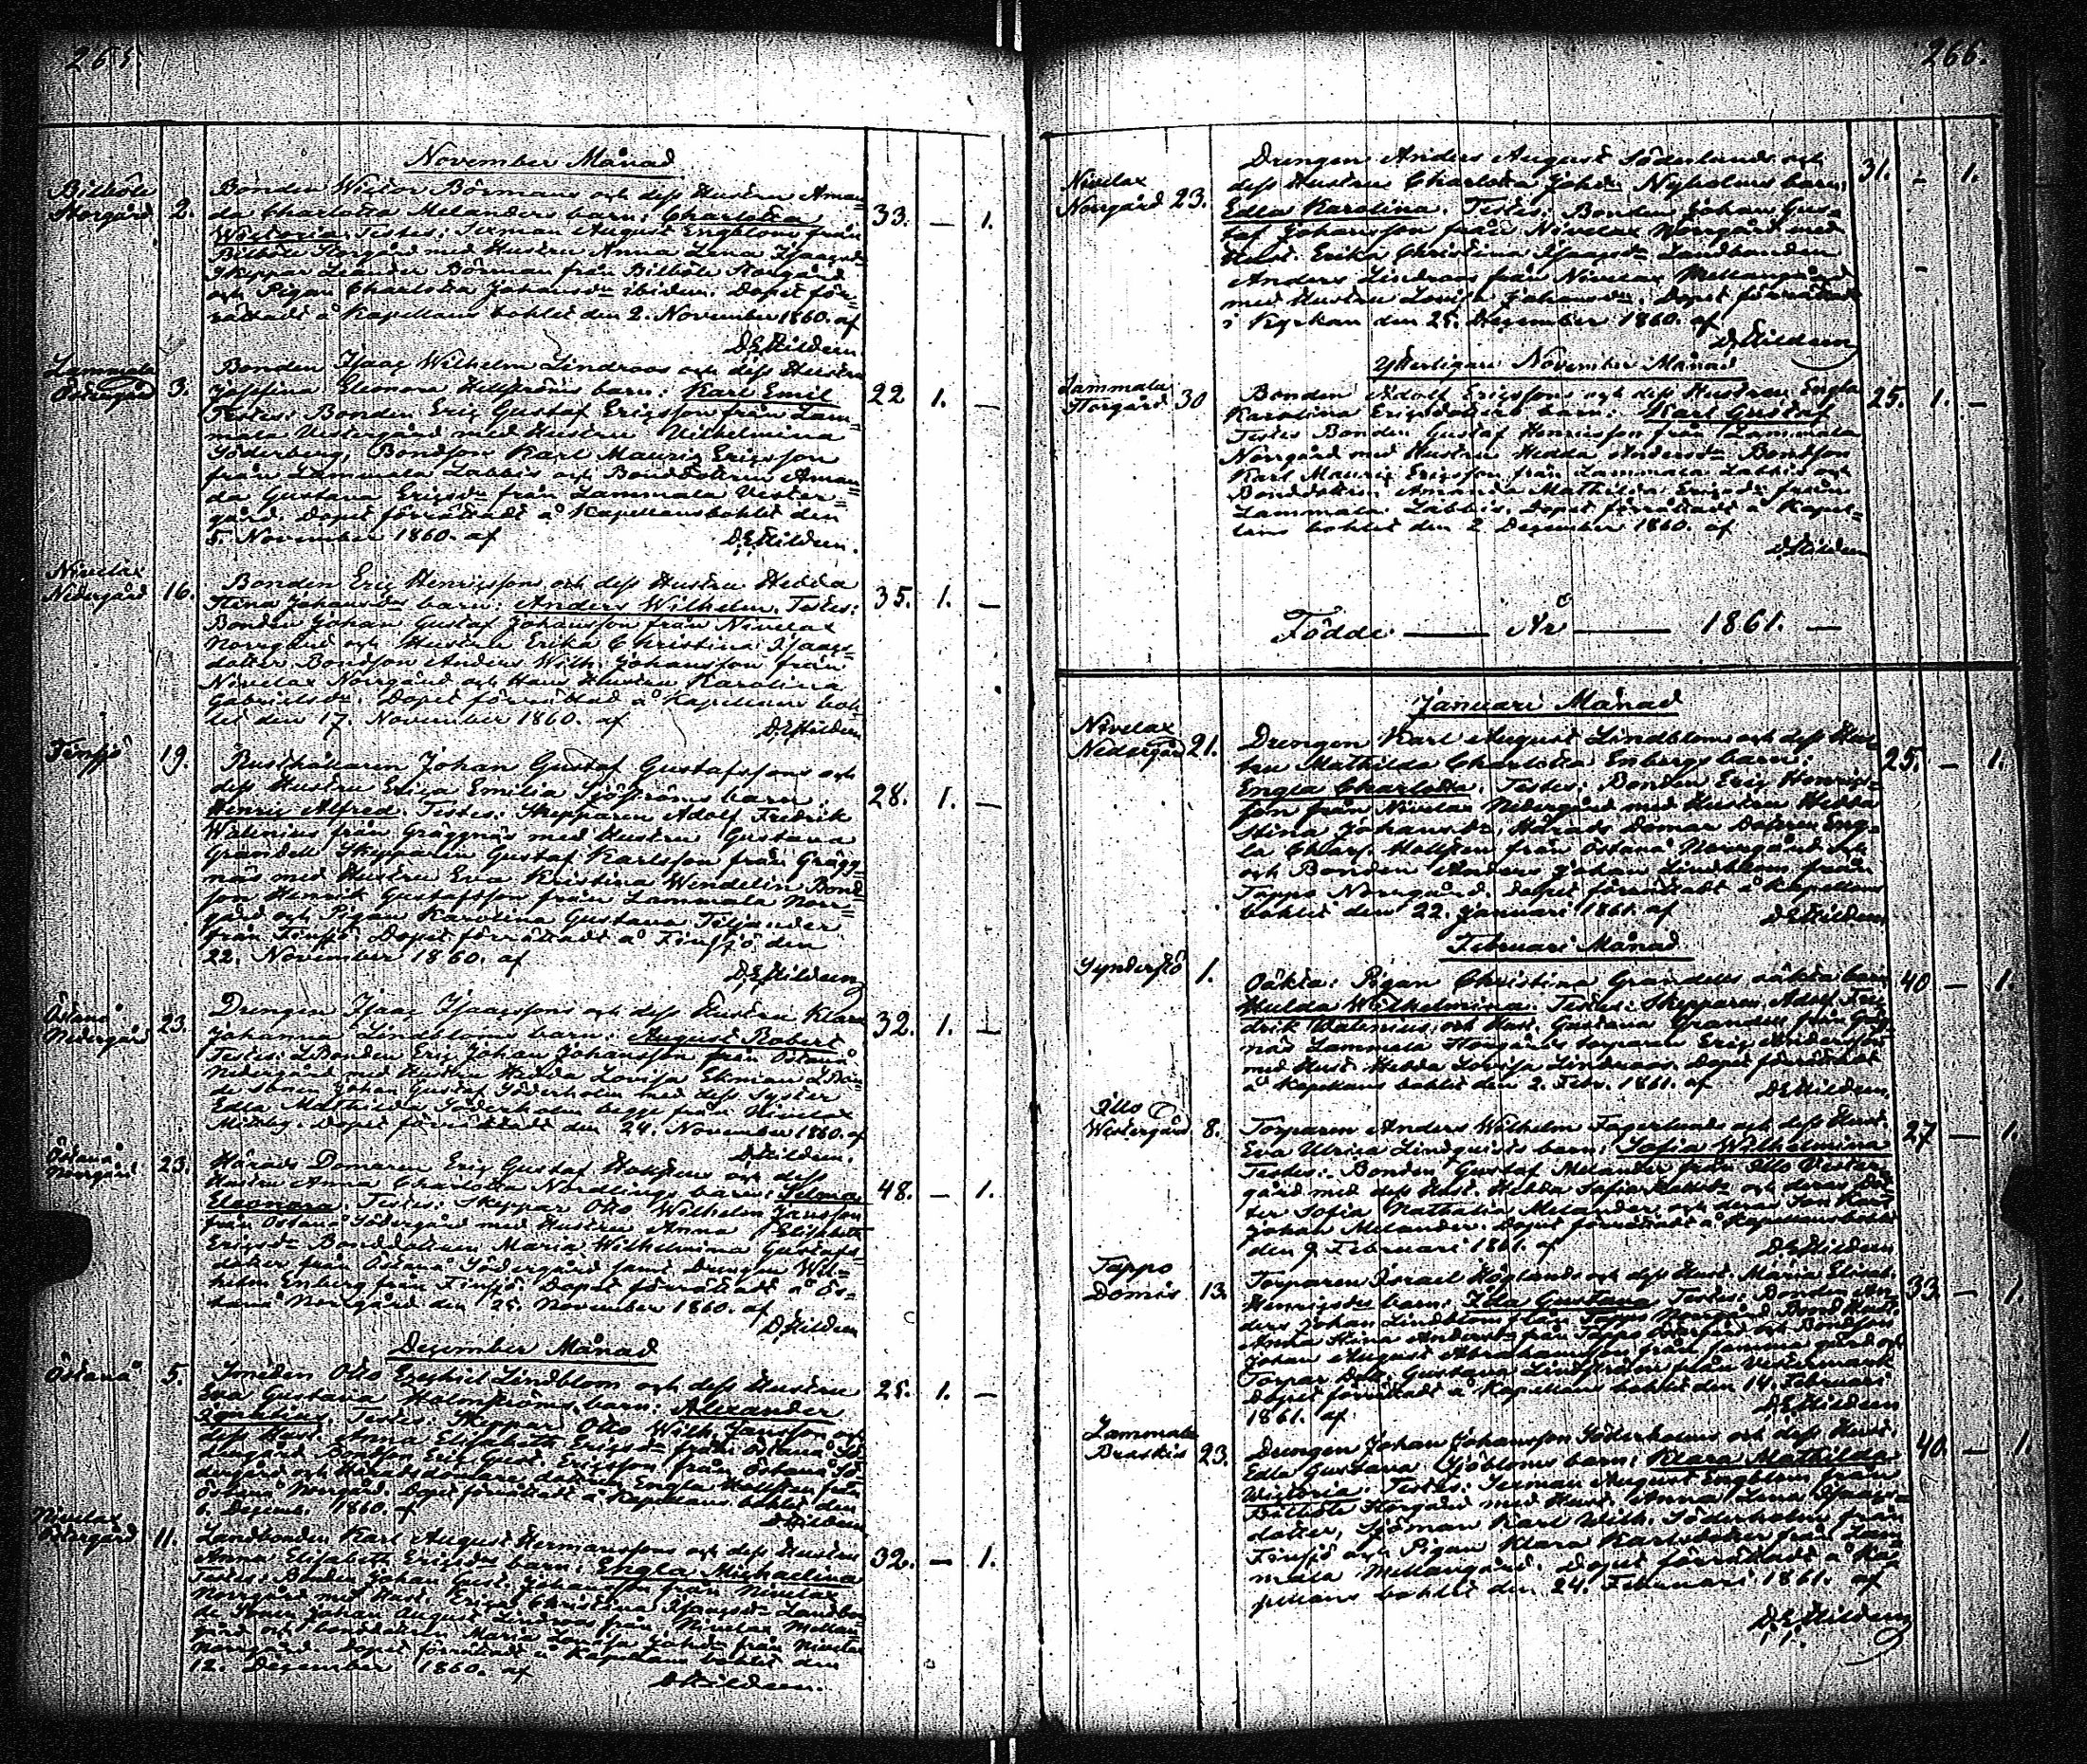 265
November Månad
Billböle
Storgård 2.
Bonden Wictor Börmans och dess Hustru Aman=
da Charlotta Melanders barn: Charlotta 33. — 1.
Wictoria. Testes: August Engblom från
Billböle Storgård med Hustru Anna Lena Isaacsdr
Skeppar Leander Börman från Billböle Storgård
och Pigan Charlotta Johansdr ibidem. Dopet för=
rättadt å Kapellans bohlet den 2. November 1860. af
D.E. Hildeen
Lammala
Östergård 3.
Bonden Isaac Wilhelm Lindroos och dess Hustru
Josefina Eleonora Hellströms barn: Karl Emil 22 1. —
Testes: Bonden Eric Gustaf Ericsson från Lam=
mala Vestergård med Hustru Wilhelmina
Söderberg, Bondson Karl Mauritz Ericsson
från Lammala Labbis och Bonddottren Aman=
da Gustava Ericsdr från Lammala Vester=
gård. Dopet förrättadt å Kapellansbohlet den
5. November 1860. af D.E. Hildeen.
Nivelax
Nedergård 16.
Bonden Eric Henricssons och dess Hustru Hedda
Stina Johansdrs barn: Anders Wilhelm. Testes: 35. 1. —
Bonden Johan Gustaf Johansson från Nivelax
Norrgård och Hustru Erika Christina Isaacs=
dotter Bondson Anders Wilh. Johansson från
Nivelax Norrgård och Hans Hustru Karolina
Gabrielsdr. Dopet förrättad å Kapellans boh=
let den 17. November 1860. af D.E. Hildeen
Finsjö 19.
Rusthållaren Johan Gustaf Gustafssons och
dess Hustru Erica Emilia Sjöströms barn: 28. 1. —
Henric Alfred. Testes: Skepparen Adolf Fredrik
Walenius från Gräggnäs med Hustru Gustava
Grandell Skepparen Gustaf Karlsson från Grägg=
näs med Hustru Eva Kristina Wendelin Bond=
son Henrik Gustafsson från Lammala Norr=
gård och Pigan Karolina Gustava Siljander
från Finsjö. Dopet förrättadt å Finsjö den
22. November 1860. af
D.E. Hildeen
Östanå
Nedergård 23.
Drengen Isaac Isaacssons och dess Hustru Klara
Johanna Lindbloms barn: August Robert 32. 1. —
Testes: LBonden Eric Johan Johansson från Östanå
Nedergård med Hustru Hedda Lovisa Ekman
Johan Gustaf Söderholm med dess Syster
Edla Mathilda Söderholm begge från Nivelax
Dopet förrättadt den 24. November 1860. af
D.E. Hildeen.
Östanå
Norrgård 23.
Härads Domaren Eric Gustaf och dess
Hustru Anna Charlotta Nordlings barn: Selma 48. — 1.
Eleonora. Testes: Skeppar Otto Wilhelm Jansson
från Östanå Södergård med Hustru Anna Elisabeth
Ericsdr Bonddottren Maria Wilhelmina Gustafs=
dotter från Östanå Södergård samt Drengen Wil=
helm Enberg från Finsjö. Dopet förrättadt å Ös=
tanå Norrgård den 25. November 1860. af
D.E. Hildeen
December Månad
Östanå 5.
Smeden Otto Ezechiel Lindblom och dess Hustru
Eva Gustava Holmströms barn: Alexander 25. 1. —
Testes: Skeppar Otto Wilh. Jansson och
dess Hust. Anna Elisabeth Ericsdr från Östanå Sö=
dergård Bondson Eric Gust. Ericsson från Östanå Sö=
dergård och Häradsdomare dottren Engla från
Östanå Norrgård. Dopet förrättadt å Kapellans bohlet den
6. Decemb. 1860. af
D. Hildeen
Nivelax
11.
Landbonden Karl August Hermanssons och dess Hustru
Anna Elisabeth Ericsdrs barn: Engla Michaelina 32. — 1.
Testes: Bonden Johan Gust. Johansson från Nivelax
Norrgård med Hust. Erica Christina Isaacsdr Landbon=
de Sonen Johan August Lindroos från Nivelax Mellan=
gård och bonddottren Maria Lovisa Johsdr från Nivelax
Norrgård. Dopet förrättadt å Kapellans bohlet den
12. December 1860. af
D. Hildeen.
266.
Nivelax
Norrgård 23.
Drengen Anders August Söderlunds och 31. — 1.
dess Hustru Charlotta Johs. Nyholms barn:
Edla Karolina. Testes: Bonden Johan Gus=
taf Johansson från Nivelax Norrgård med
Hust. Erika Christina Isaacsdr Landbonden
Anders Lindroos från Nivelax Mellangård
med Hustru Lovisa Johansdr. Dopet förrättadt
i Kyrkan den 25. December 1860. af
D. Hildeen
Ytterligare November Månad
Lammala
Storgård 30
Bonden Adolf Ericssons och dess Hustru Engla 25. 1. —
Karolina Ericsdotters barn: Karl Gustaf
Testes Bonden Gustaf Henricsson från Lammala
Norrgård med Hustru Hedda Andersdr Bondson
Karl Mauritz Ericsson från Lammala Labbis och
Bonddottren Amanda Mathilda Ericsdr från
Lammala Labbis. Dopet förrättadt å Kapel=
lans bohlet den 2 December 1860. af
D. Hildeen
Födde — År — 1861. —
Januari Månad
Nivelax
Nedergård 21.
Drengen Karl August Lindbloms och dess Hus=
tru Mathilda Charlotta Enbergs barn: 25. — 1.
Engla Charlotta. Testes: Bonden Eric Henrics=
son från Nivelax Nedergård med Hustru Hedda
Stina Johansdr, Härads Domar Dottren Eng=
la Charl. från Östanå Norrgård
och Bonden Anders Johan Lindblom från
Tappo Norrgård. Dopet förrättadt å Kapellans
bohlet den 22. Januari 1861. af D.E. Hildeen
Februari Månad
Synderstö 1.
Oäkta: Pigan Christina Grandells oäkta barn 40 — 1.
Hulda Wilhelmina. Testes: Skepparen Adolf Fre=
drik Walenius och Hust. Gustava Grandell från Gräg=
näs Lammala Storgårds torparen Eric Andersson
med Hust. Hedda Lovisa Lindroos. Dopet förrättadt
å Kapellans bohlet den 2. Febr. 1861. af D.E. Hildeen.
Illo
Westergård 8.
Torparen Anders Wilhelm Fagerlunds och dess Hust.
Eva Ulrica Lindquists barn: Sofia Wilhelmina 27 — 1.
Testes: Bonden Gustaf Melander från Illo Vester=
gård med dess Hust. Hedda Sofia och deras Dot=
ter Sofia Nathalia Melander, och deras Son
Johan Melander. Dopet förrättadt å Kapellansbohlet
den 9 Februari 1861. af D.E. Hildeen
Tappo
Domis 13.
Torparen Israel Höglunds och dess Hust. Maria Elisab.
Henricsdrs barn: Ida Gustava Testes: Bonden An= 33. — 1.
ders Johan Lindblom från Tappo Norrgård Bond Hust.
Anna Stina Andersdr från Tappo och Bondson
Johan August Abrahamsson från samma gård och
Torpar Dott. Gustava Lindström från
Dopet förrättadt å Kapellans bohlet den 14. Februari
1861. af D.E. Hildeen
Lammala
Braskis 23.
Drengen Johan Johansson Söderholms och dess Hust.
Edla Gustava Sjöbloms barn: Klara Mathilda 40. — 1.
Wictoria. Testes: August Engblom från
Billböle Storgård med Hust. Anna Lena Isaacs=
dotter, Sjöman Karl Wilh. Söderholm från
Finsjö och Pigan Klara Karlsdotter från Lam=
mala Mellangård. Dopet förrättadt å Ka=
pellans bohlet den 24. Februari 1861. af
D.E. Hildeen